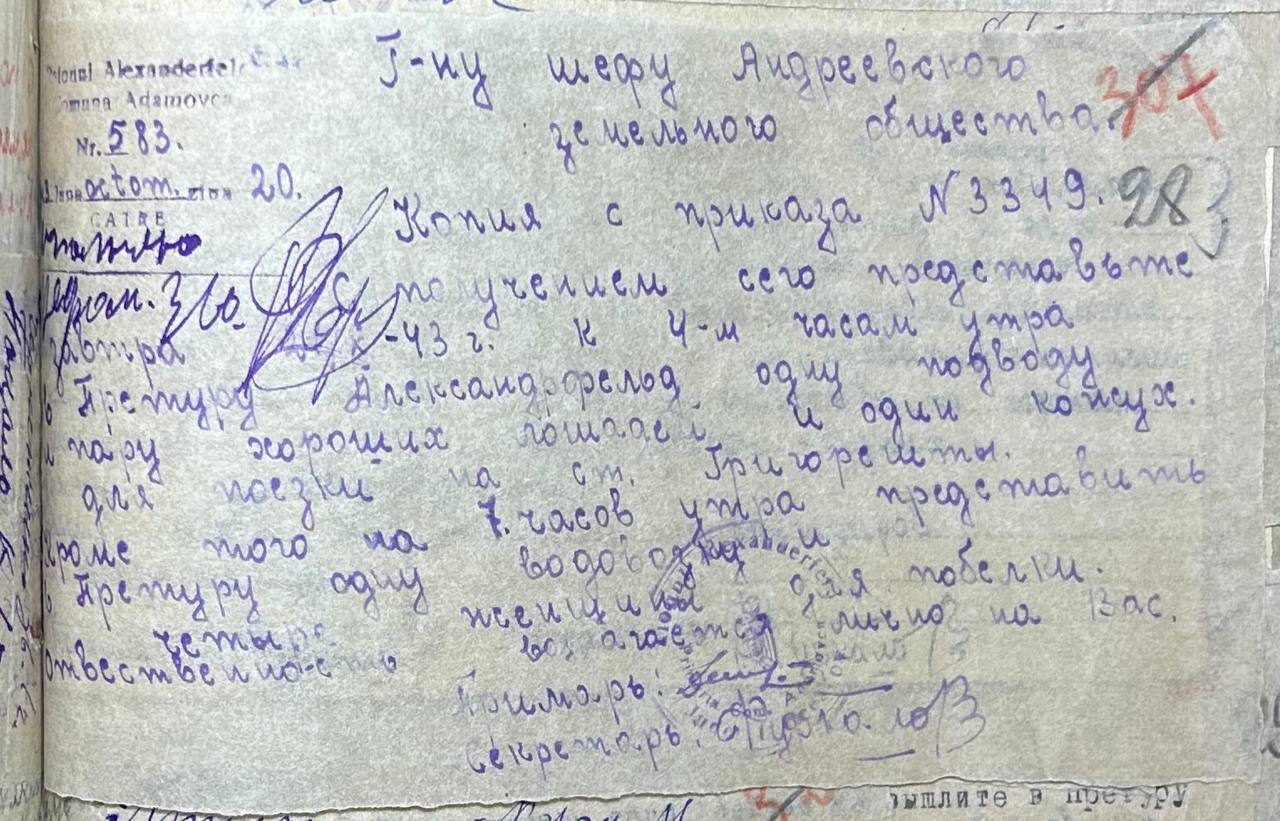 Alexanderfeld
Comuna Adamovca
Nr. 583.
octom. 20.
CATRE
Г-ну шефу Андреевского
земельного общества.
307
Копия с приказа N 3349.
283
С получением сего представьте
завтра -43 г. к 4-м часам утра
в Претуру Александрфельд одну подводу
и пару хороших лошадей и один кожух.
для поезки на ст. Григорешты.
Кроме того на 7. часов утра представить
в Претуру одну водовозку и
четыре женщины для побелки.
отвественно-сть возлагается лично на Вас.
Примарь:
Секретарь:
зыплите в претуру